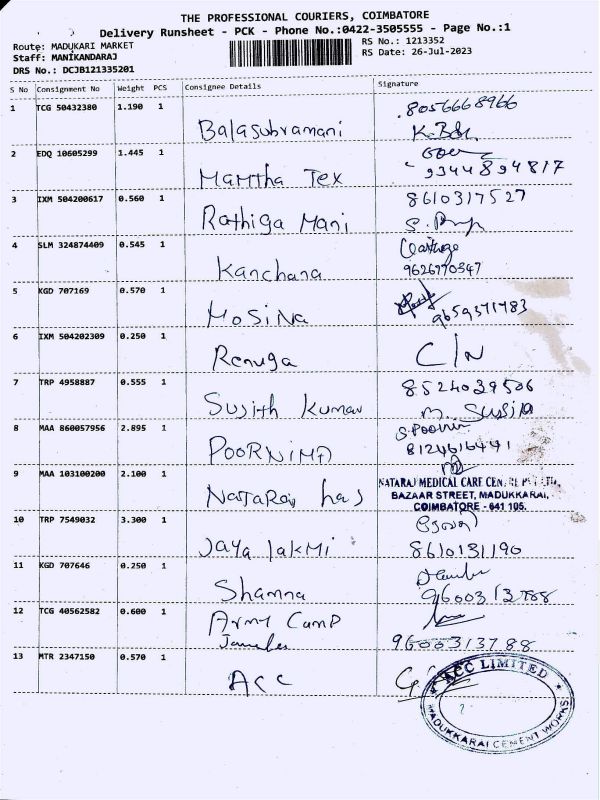 THE PROFESSIONAL COURIERS, COIMBATORE
Delivery Runsheet - PCK - Phone No.:0422-3505555 - Page No.:1
Route: MADUKARI MARKET
RS No.: 1213352
Staff: MANIKANDARAJ
RS Date: 26-Jul-2023
DRS No.: DCJB121335201
S No Consignment No Weight PCS Consignee Details Signature
1 TCG 50432380 1.190 1 8056668966
Balasubramani
2 EDQ 10605299 1.445 1
Mamtha Tex 9344894817
3 IXM 504200617 0.560 1 8610317527
Rathiga Mani
4 SLM 324874409 0.545 1
Kanchana 9626770347
5 KGD 707169 0.570 1
Mosina 9659371783
6 IXM 504202309 0.250 1
Renuga C/N
7 TRP 4958887 0.555 1 8524039506
Sujith Kumar M. Susila
8 MAA 860057956 2.895 1 S.Poorni
POORNIMA 8124616441
9 MAA 103100200 2.100 1 NATARAJ MEDICAL CARE
BAZAAR STREET, MADUKKARAI,
COIMBATORE - 641 105.
10 TRP 7549032 3.300 1
Jaya lakMi 8610131190
11 KGD 707646 0.250 1
Shamna 9600313788
12 TCG 40562582 0.600 1
Army Camp
9600313788
13 MTR 2347150 0.570 1
ACC
ACC LIMITED
MADUKKARAI CEMENT WORKS